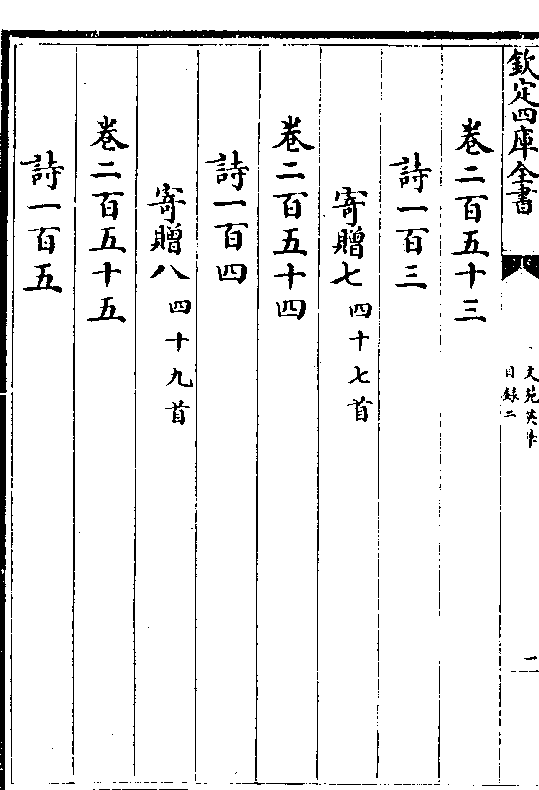 欽定四庫全書
文苑英華
目録二
一
卷二百五十三
詩一百三
寄贈七 四十七首
卷二百五十四
詩一百四
寄贈八 四十九首
卷二百五十五
詩一百五